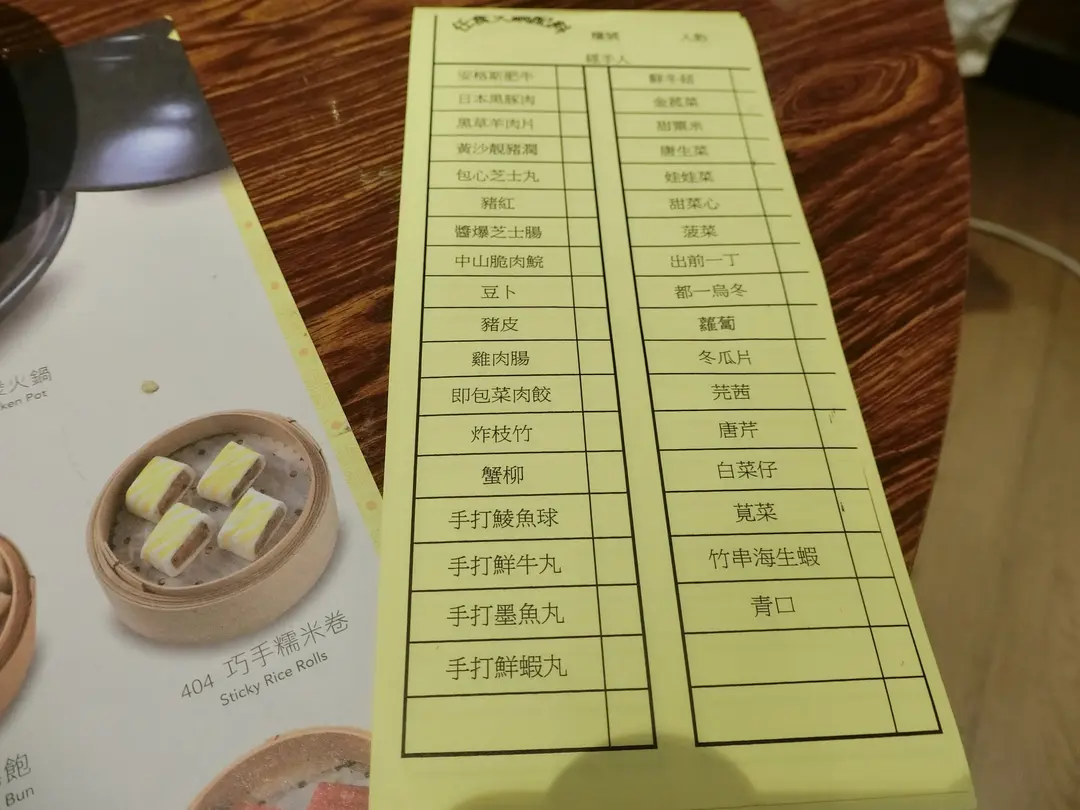 檯號 人數
經手人
安格斯肥牛
日本黑豚肉
黑草羊肉片
黃沙靚豬潤
包心芝士丸
豬紅
醬爆芝士腸
中山脆肉鯇
豆卜
豬皮
雞肉腸
即包菜肉餃
炸枝竹
蟹柳
手打鯪魚球
手打鮮牛丸
手打墨魚丸
手打鮮蝦丸
鮮冬菇
金菇菜
甜粟米
唐生菜
娃娃菜
甜菜心
菠菜
出前一丁
都一烏冬
蘿蔔
冬瓜片
芫茜
唐芹
白菜仔
莧菜
竹串海生蝦
青口
火鍋
ken Pot
404 巧手糯米卷
Sticky Rice Rolls
飽
Bun